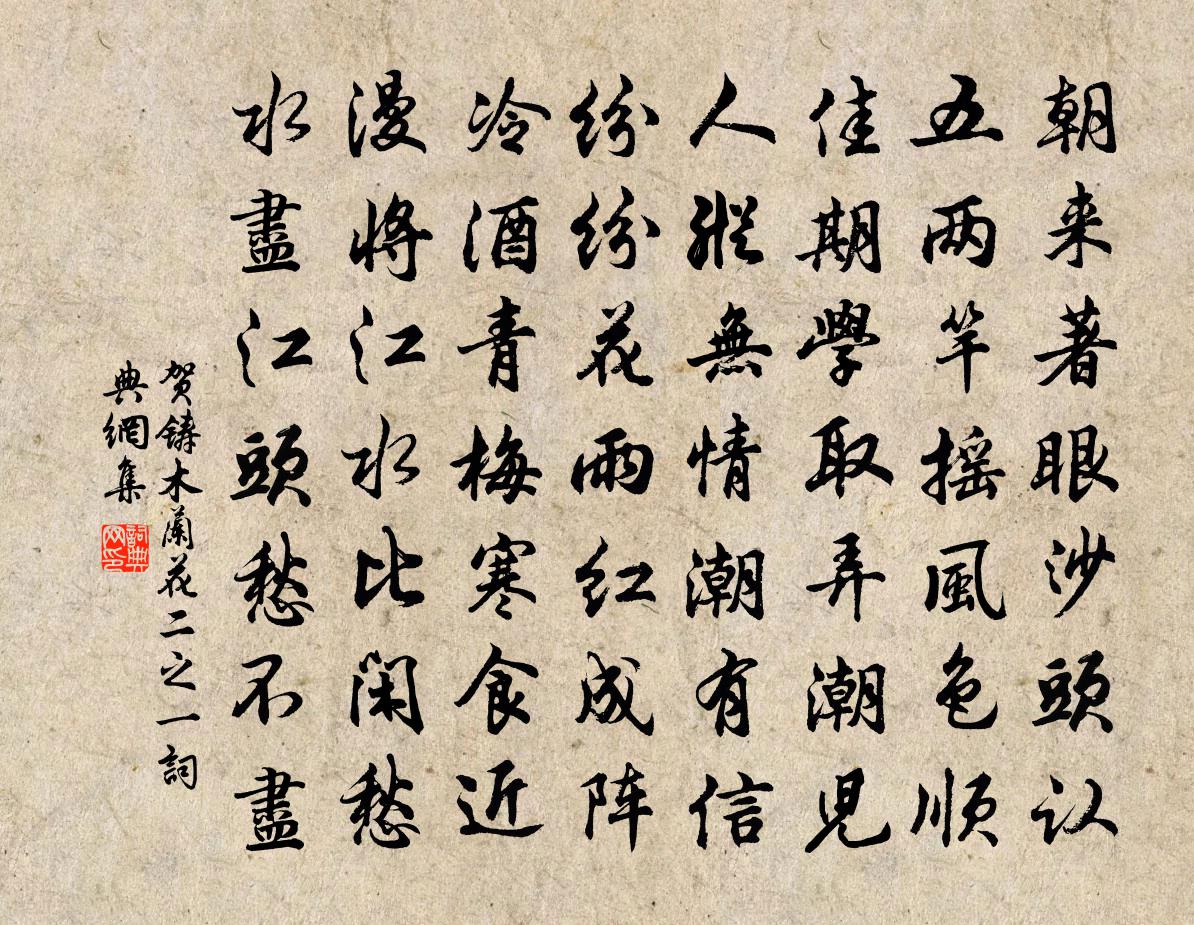 朝来著眼沙頭认
五两竿摇風色順
佳期學取弄潮兒
人縱無情潮有信
紛紛花雨红成阵
冷酒青梅寒食近
漫将江水比閑愁
水盡江頭愁不盡
贺鑄木蘭花二之一詞
典網集
詞典
网印